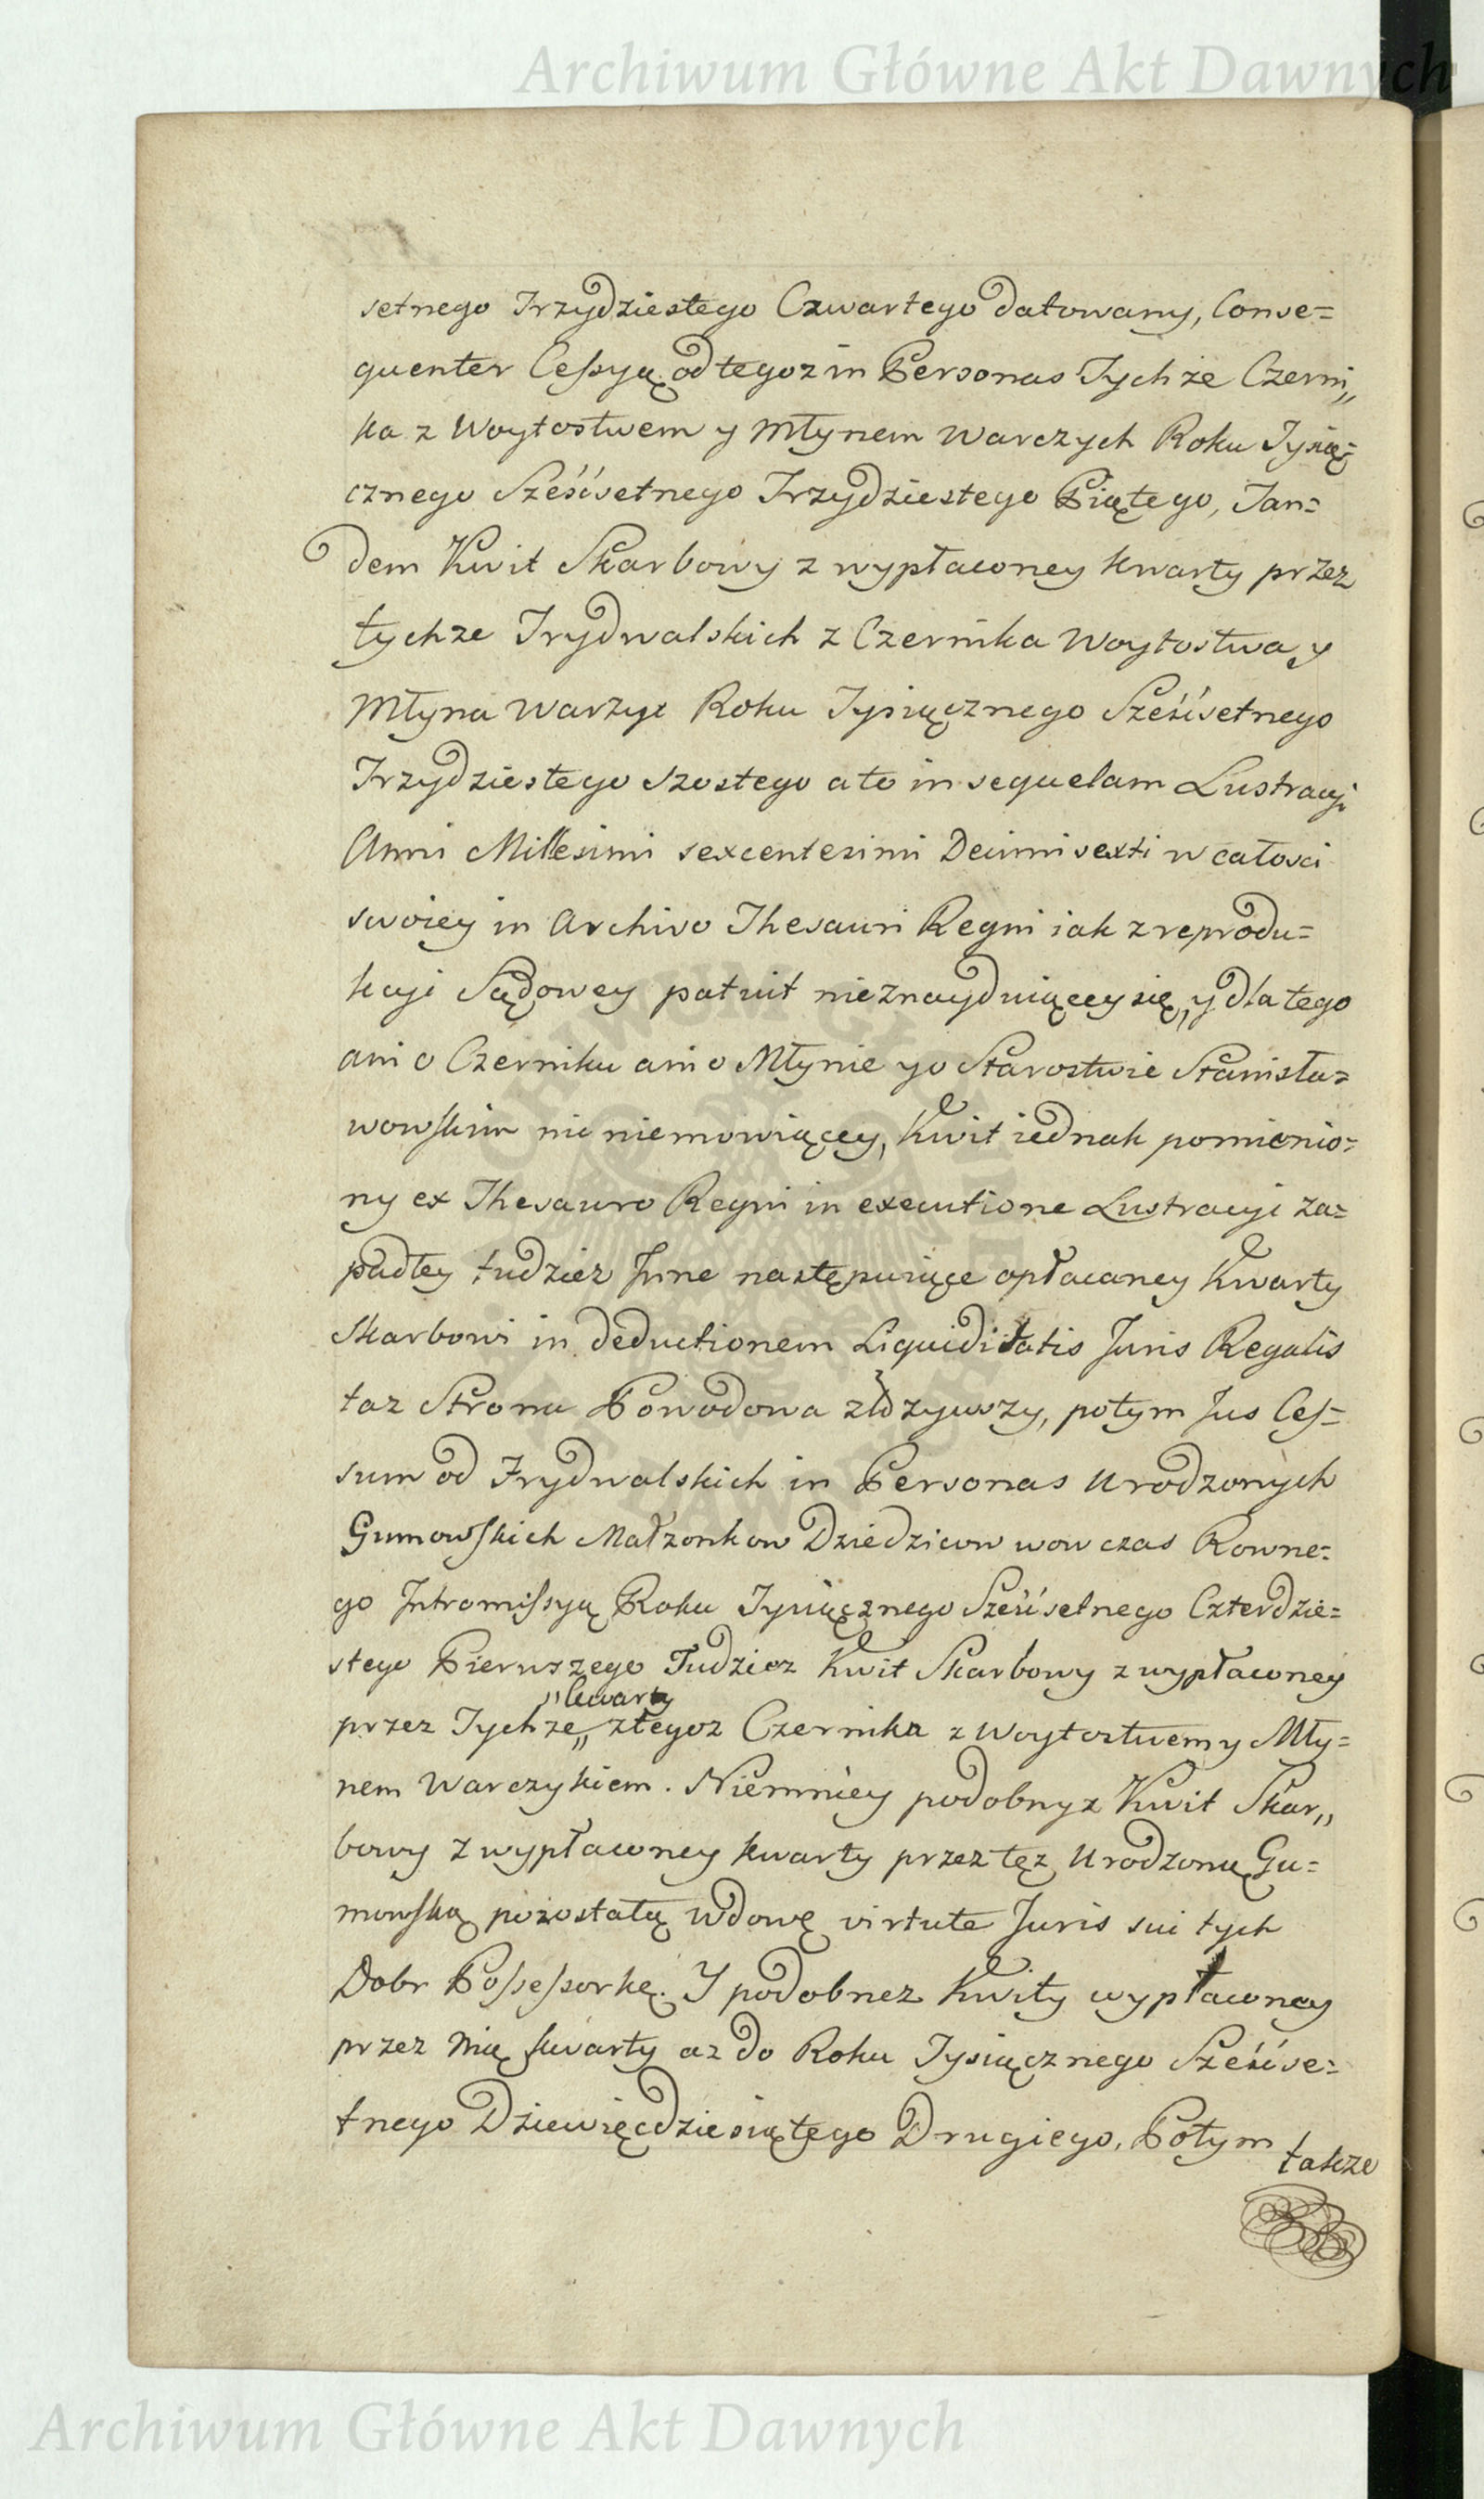 Archiwum Główne Akt Dawnych
setnego Trzydziestego Czwartego datowany, Conse=
quenter Cessyą od tegoz in Personas Tychze Czerni„
ka z Woytostwem y Młynem Warczych Roku Tysią=
cznego Sześćsetnego Trzydziestego Piątego, Tan=
dem Kwit Skarbowy z wypłaconey kwarty przez
tychze Frydwalskich z Czernika Woytostwa y
Młyna Warzyc Roku Tysiącznego Sześćsetnego
Trzydziestego Szostego a to in sequelam Lustracyi
Anni Millesimi sexcentesimi Decimi sexti w całosci
swoiey in Archivo Thesauri Regni iak z reprodu=
kcyi Sądowey patuit nieznayduiącey się, y dla tego
ani o Czerniku ani o Młynie y o Starostwie Stanisła=
wowskim nic niemowiącey, Kwit iednak pomienio=
ny ex Thesauro Regni in executione Lustracyi za=
padłey tudzież Jnne następuiące opłacaney Kwarty
Skarbowi in deductionem Liquiditatis Juris Regalis
taz Strona Powodowa złożywszy, potym Jus Ces=
sum od Frydwalskich in Personas Urodzonych
Gumowskich Małzonkow Dziedzicow wow czas Rowne=
go Jntromissyą Roku Tysiącznego Sześćsetnego Czterdzie=
stego Pierwszego Tudziez Kwit Skarbowy z wypłaconey
„kwarty
przez Tychze„ z tegoz Czernika z Woytostwem y Mły=
nem Warczykiem. Niemniey podobnyz Kwit Skar„
bowy z wypłaconey kwarty przez tęz Urodzoną Gu=
mowską pozostałą Wdowę virtute Juris sui tych
Dobr Possessorkę. Y podobnez Kwity wypłaconey
przez Nią kwarty az do Roku Tysiącznego Sześćse=
tnego Dziewięćdziesiątego Drugiego, Potym
takze
Archiwum Główne Akt Dawnych